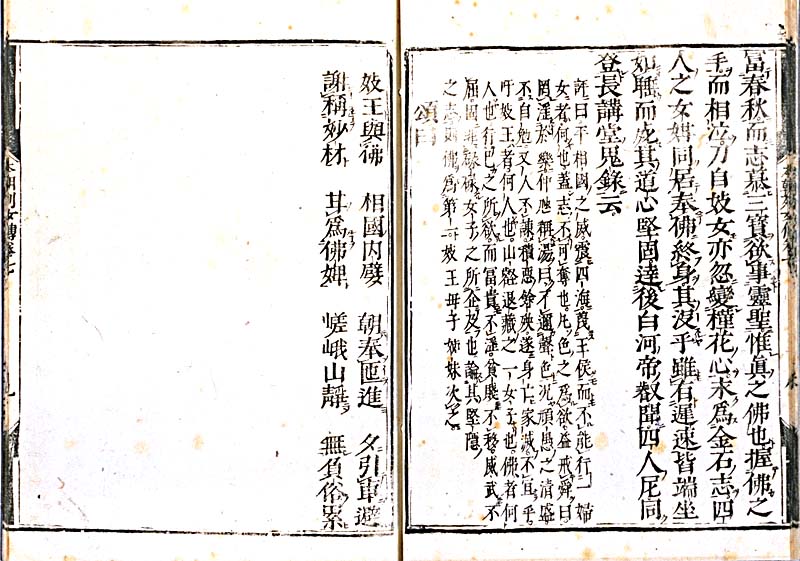 富春秋而志慕三寶欲事靈聖惟眞之佛也握佛之
手而相泣刀自妓女亦忽變種花心末為金石志四
人之女同居奉佛終身其没乎雖有遲速皆端坐
如眠而其道心堅固達後白河帝叡聞四人尼同
登長講堂鬼錄云
評曰平相國之威震四海蔑王侯而不能行一婦
女者何也蓋志不可奪也凡色之為欲益戒舜曰
罔淫於樂仲虺稱湯曰不邇聲色况頑愚之清盛
不自勉又人不諌積惡餘殃遂身亡家滅不宜乎
吁妓王者何人也山谿退藏之一女子也佛者何
人也行己之所欲而富貴不淫貧賤不移威武不
屈固女子之所企及也論其堅隱
之志則佛為第一妓王母子姉妹次之
頌曰
妓王與佛 相國内嬖 朝奉匜進 夕引車避
謝稱妙材 甘為佛婢 嵯峨山靜 無負俗累
本朝列女傳卷七